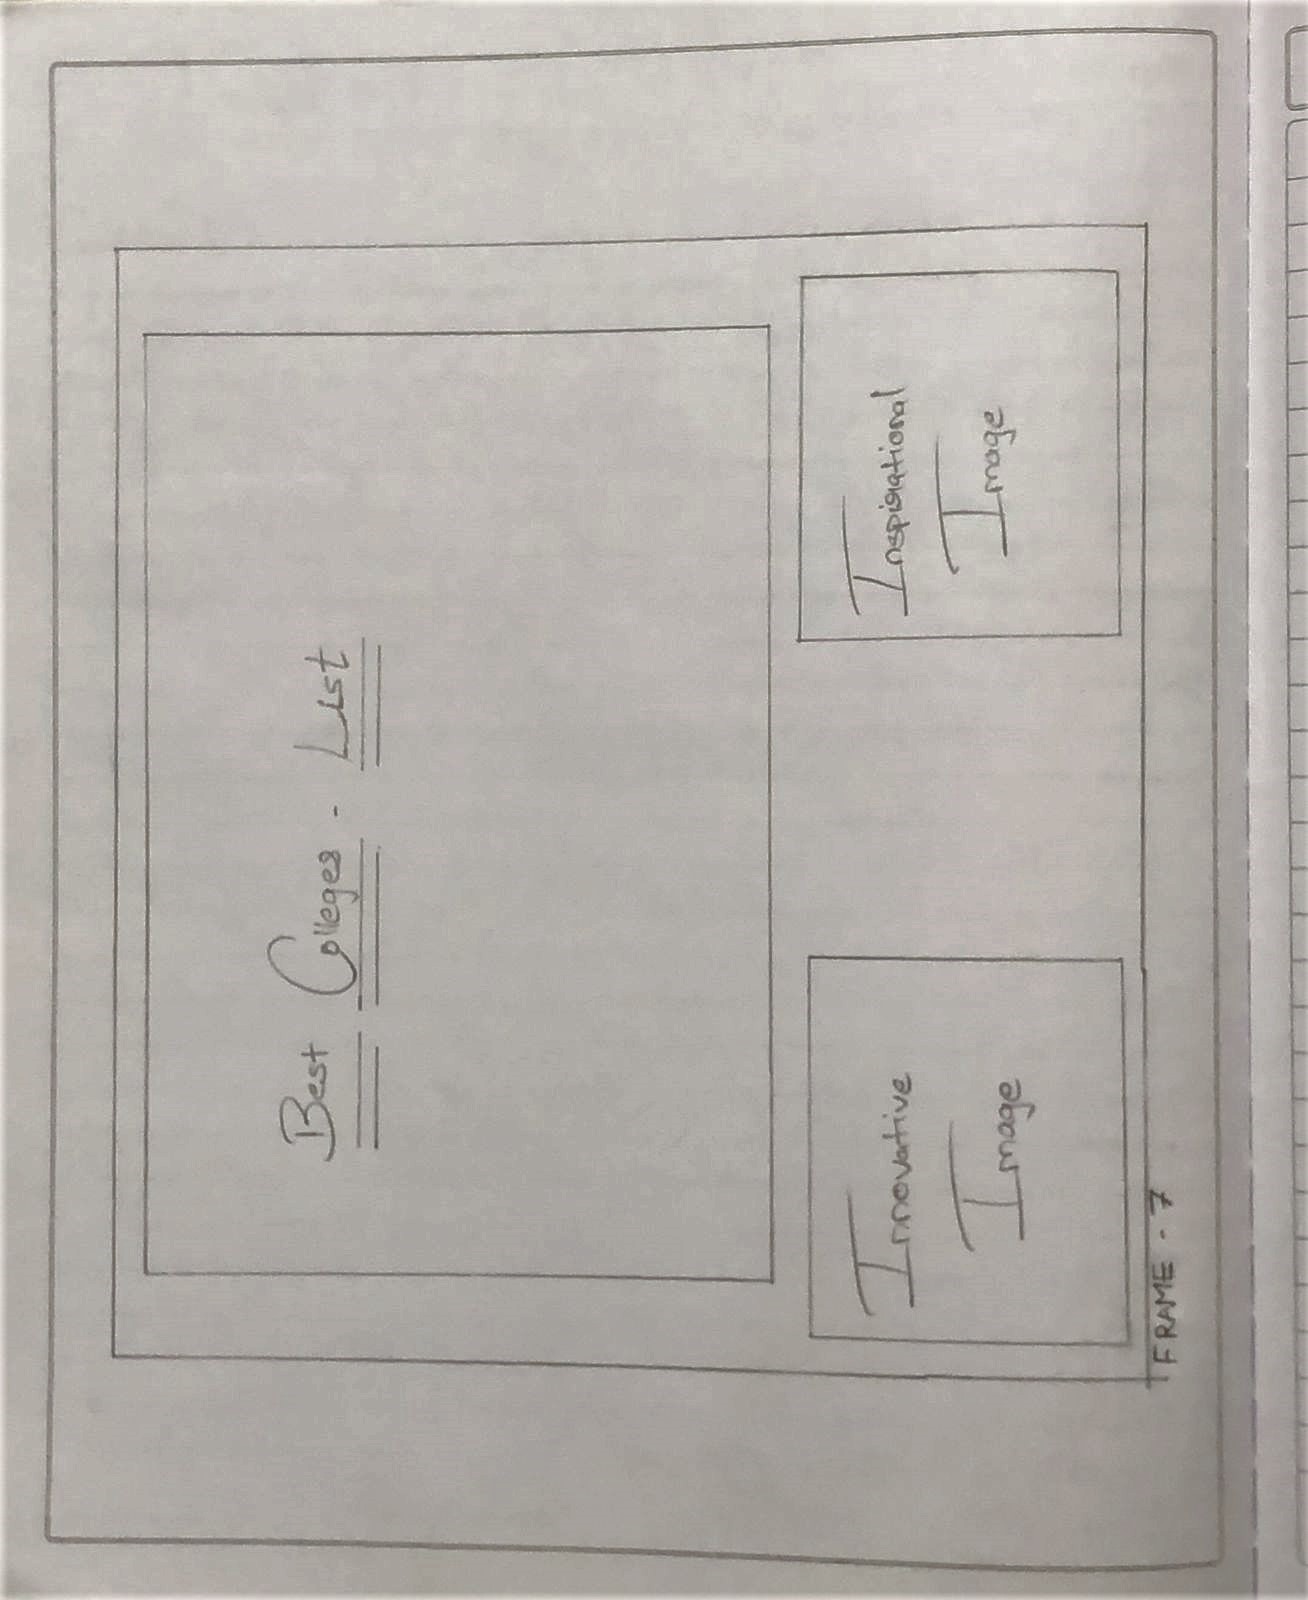 Best Colleges - List
Innovative
Image
Inspirational
Image
FRAME - 7